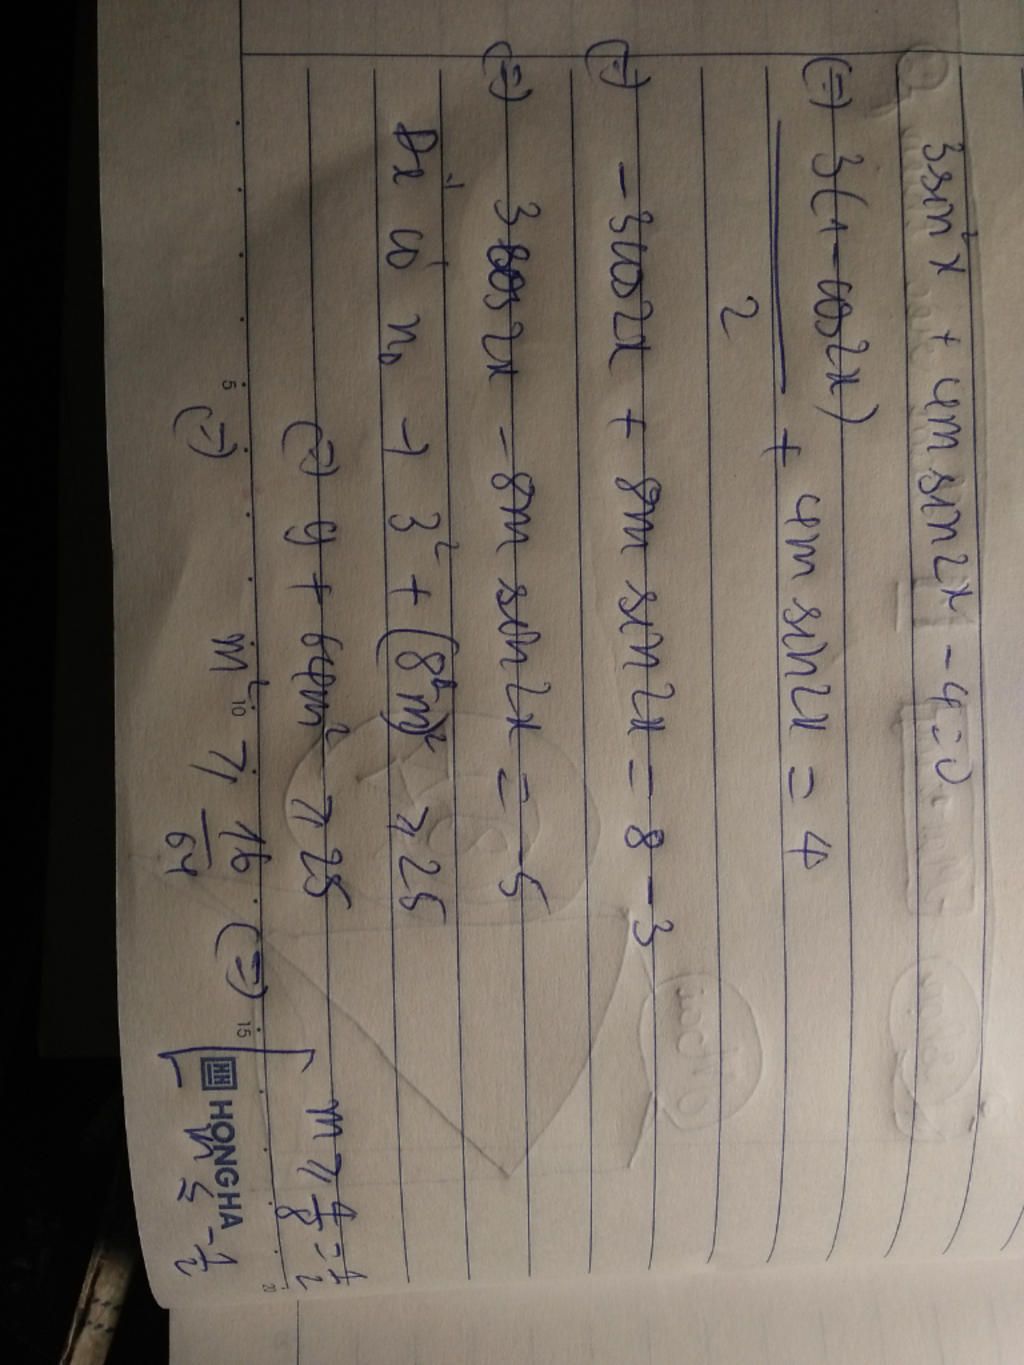 3sin²x + 4m sin2x - 4 = 0
(=) 3(1 - cos2x) / 2 + 4m sin2x = 4
(=) -3cos2x + 8m sin2x = 8 - 3
(=) 3cos2x - 8m sin2x = -5
Để có n₀ → 3² + (8m)² ≥ 25
(=) 9 + 64m² ≥ 25
(=) m² ≥ 16/64 (=) [ m ≥ 4/8 = 1/2
m ≤ -1/2
5 10 15 20
HH HONG HA